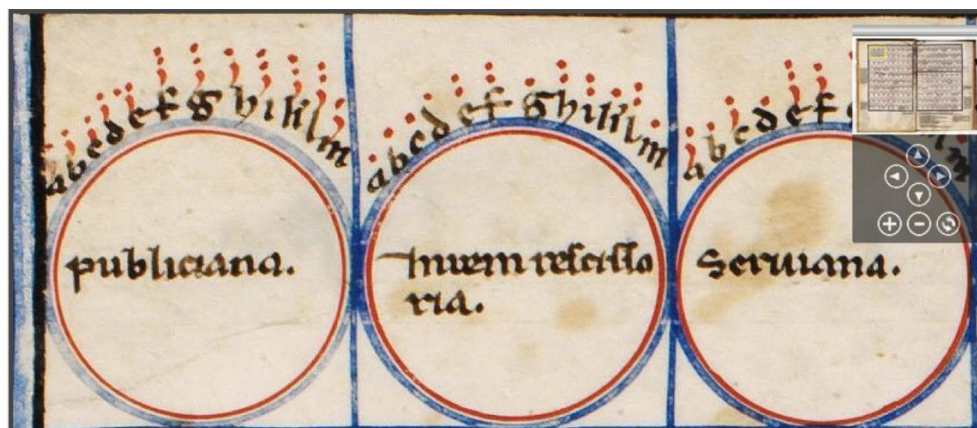 a b c d e f g h i k l m
publiciana.
a b c d e f g h i k l m
In rem rescisso
ria.
a b c d e f
m
Seruiana.